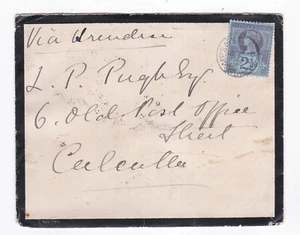 Via Brindisi
L. P. Pugh Esq.
6. Old Post Office
Street
Calcutta
2½d